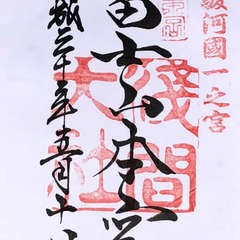 駿河國一之宮
富士山本宮
淺間
大社
成二十年五月十